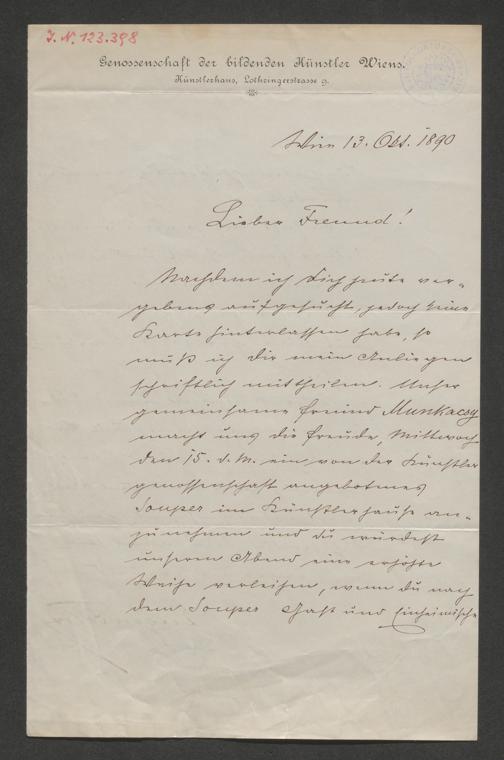 J. N. 123.398
Genossenschaft der bildenden Künstler Wiens.
Künstlerhaus, Lothringerstrasse 9.
Wien 13. Okt. 1890
Lieber Freund!
Nachdem ich Dich heute ver-
gebens aufgesucht, jedoch keine
Karte hinterlassen habe, so
muß ich Dir mein Anliegen
schriftlich mittheilen. Unser
gemeinsame Freund Munkacsy
macht uns die Freude, Mittwoch
den 15. d. M. ein von der Künstler
genossenschaft angebotenes
Souper im Künstlerhause an-
zunehmen und du würdest
unserem Abend eine erhöhte
Weihe verleihen, wenn du nach
dem Souper Gast und Einheimische